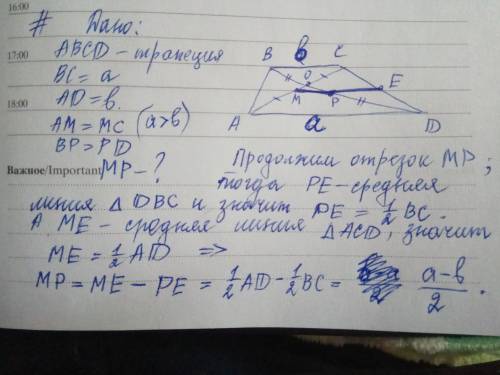 16:00
# Дано:
17:00
ABCD – трапеция
BC = a
AD = b.
18:00
AM = MC (a>b)
BP = PD
Важное/Important MP – ?
B b C
O E
M P
A a D
Продолжим отрезок MP;
тогда PE – средняя
линия △ DBC и значит PE = 1/2 BC.
А ME – средняя линия △ACD, значит
ME = 1/2 AD =>
MP = ME – PE = 1/2 AD – 1/2 BC = a–b/2.